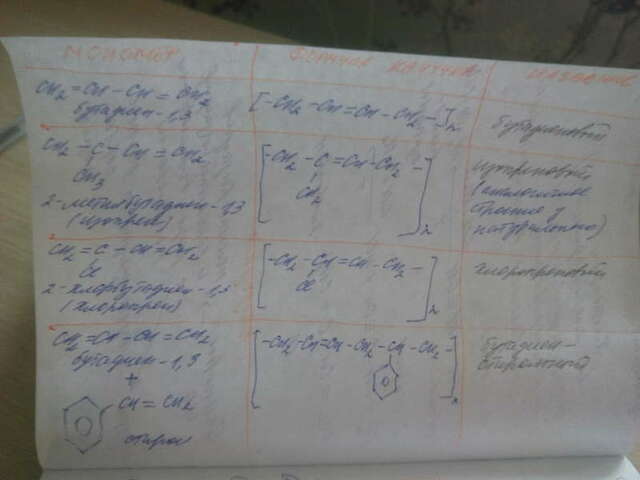 МОНОМЕР
ФОРМУЛА КАУЧУКА
НАЗВАНИЕ
CH2=CH-CH=CH2
бутадиен-1,3
[-CH2-CH=CH-CH2-]n
бутадиеновый
CH2-C-CH=CH2
CH3
2-метилбутадиен-1,3
(изопрен)
[-CH2-C=CH-CH2-]n
CH2
изопреновый
(аналогичное
строение у
натурального)
CH2=C-CH=CH2
Cl
2-хлорбутадиен-1,3
(хлоропрен)
[-CH2-CH=CH-CH2-]n
Cl
хлоропреновый
CH2=CH-CH=CH2
бутадиен-1,3
+
CH=CH2
стирол
[-CH2-CH=CH-CH2-CH-CH2-]n
бутадиен-
стирольный